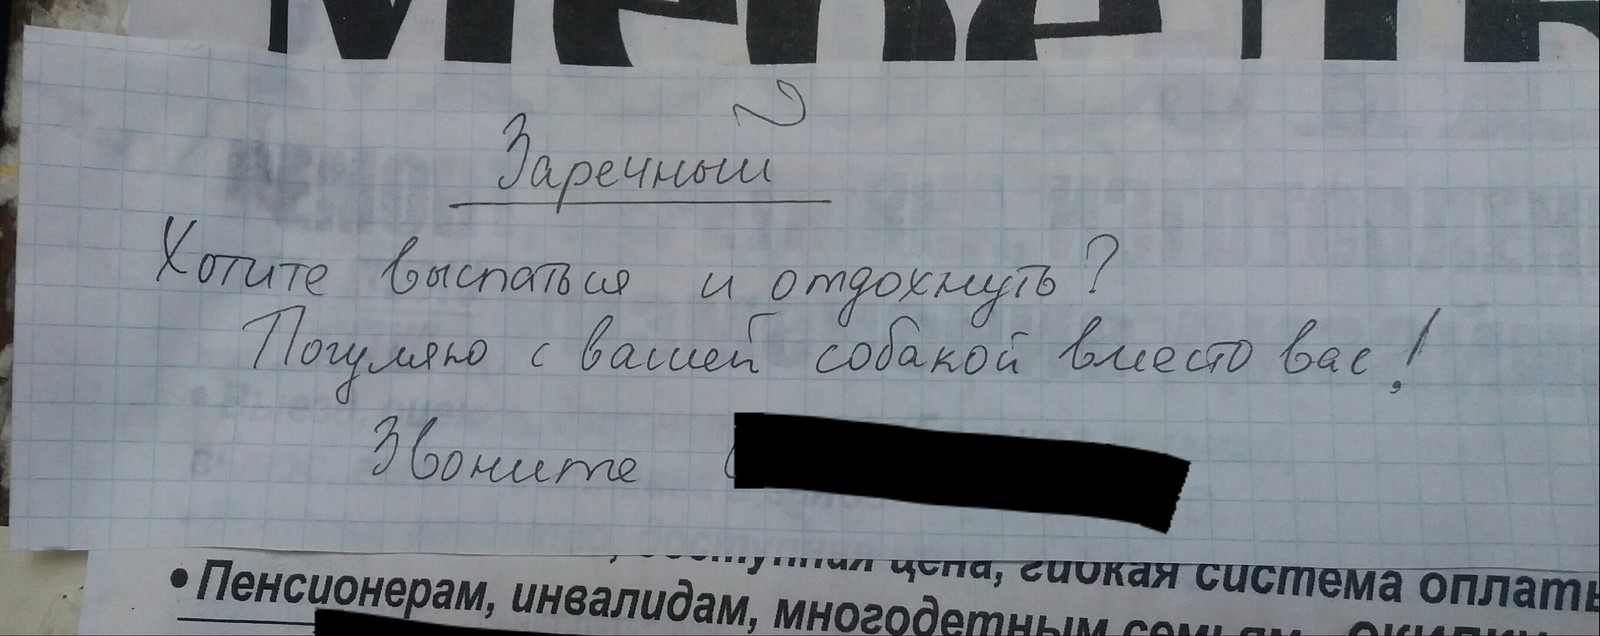 Заречный
Хотите выспаться и отдохнуть?
Погуляю с вашей собакой вместо вас!
Звоните
доступная цена, гибкая система оплаты
• Пенсионерам, инвалидам, многодетным семьям